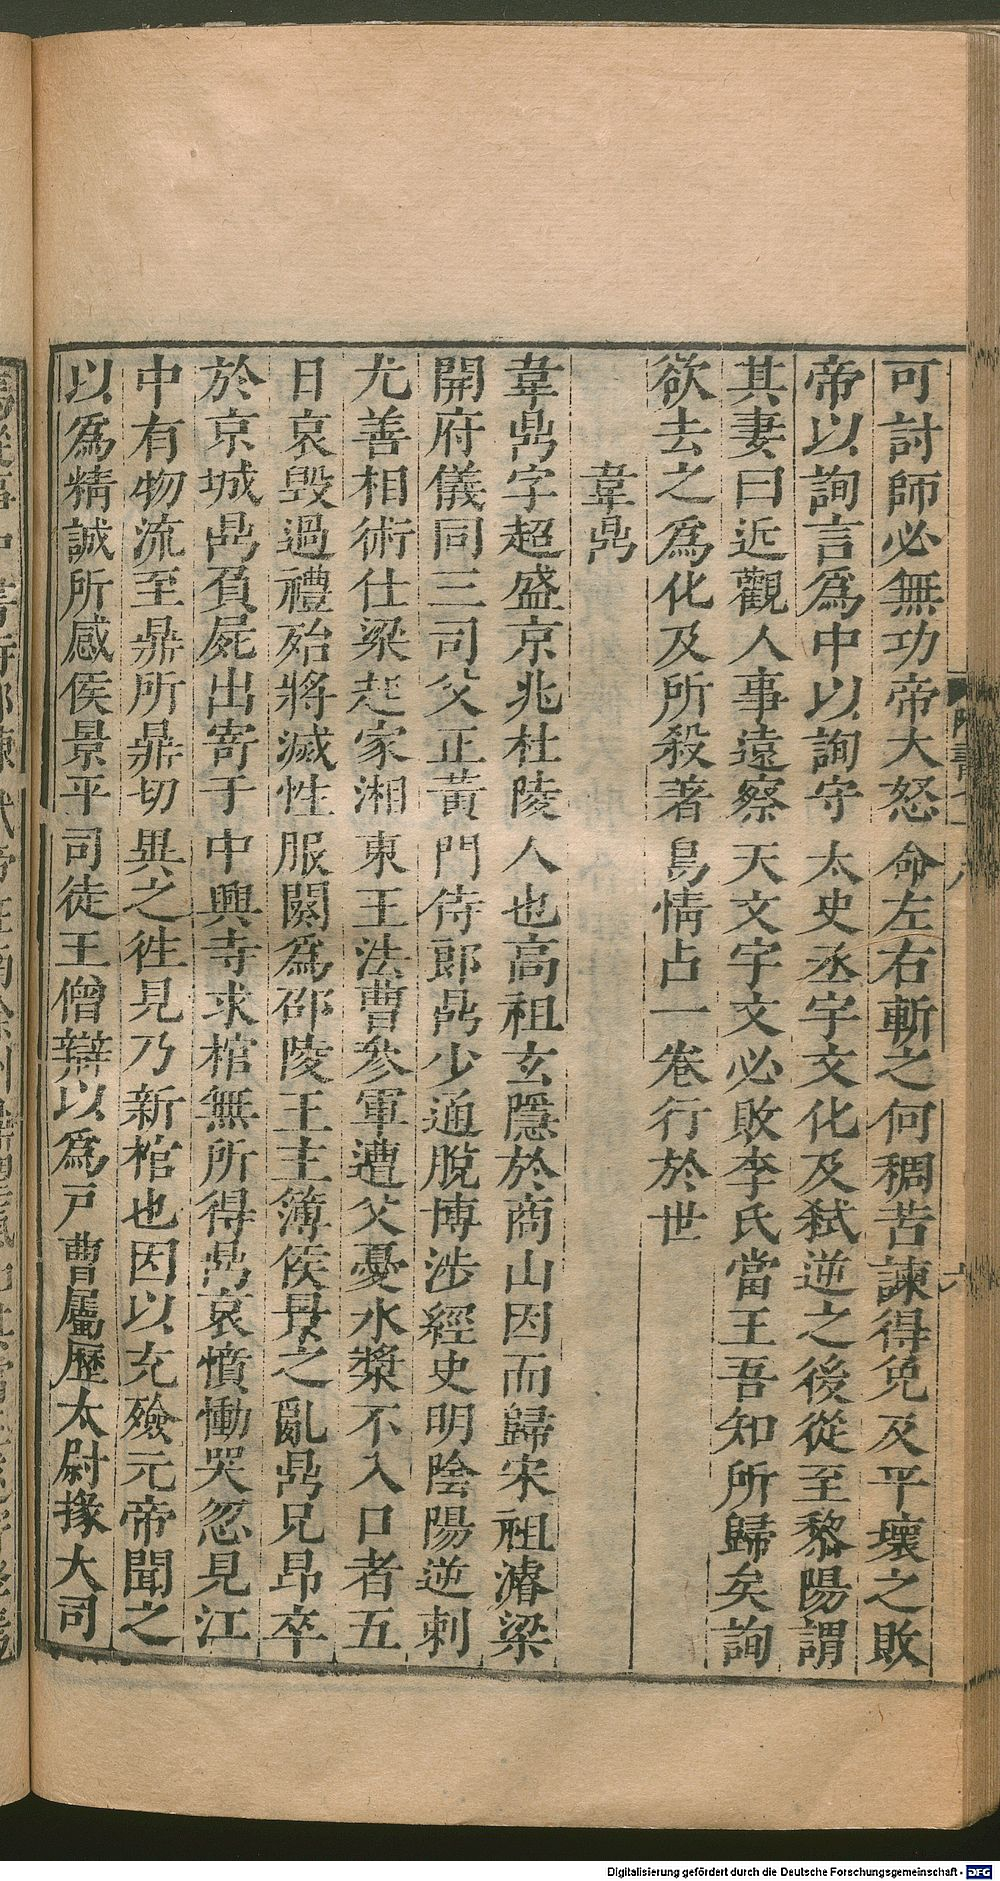 可討師必無功帝大怒命左右斬之何稠苦諫得免及平壤之敗
帝以詢言爲中以詢守太史丞宇文化及弑逆之後從至黎陽謂
其妻曰近觀人事遠察天文宇文必敗李氏當王吾知所歸矣詢
欲去之爲化及所殺著鳥情占一卷行於世
韋鼎
韋鼎字超盛京兆杜陵人也高祖玄隱於商山因而歸宋祖濬梁
開府儀同三司父正黃門侍郎鼎少通脫博涉經史明陰陽逆刺
尤善相術仕梁起家湘東王法曹參軍遭父憂水漿不入口者五
日哀毀過禮殆將滅性服闋爲邵陵王主簿侯景之亂鼎兄昂卒
於京城鼎負屍出寄于中興寺求棺無所得鼎哀憤慟哭忽見江
中有物流至鼎所鼎切異之往見乃新棺也因以充殮元帝聞之
以爲精誠所感侯景平司徒王僧辯以爲戶曹屬歷太尉掾大司
Digitalisierung gefördert durch die Deutsche Forschungsgemeinschaft - DFG